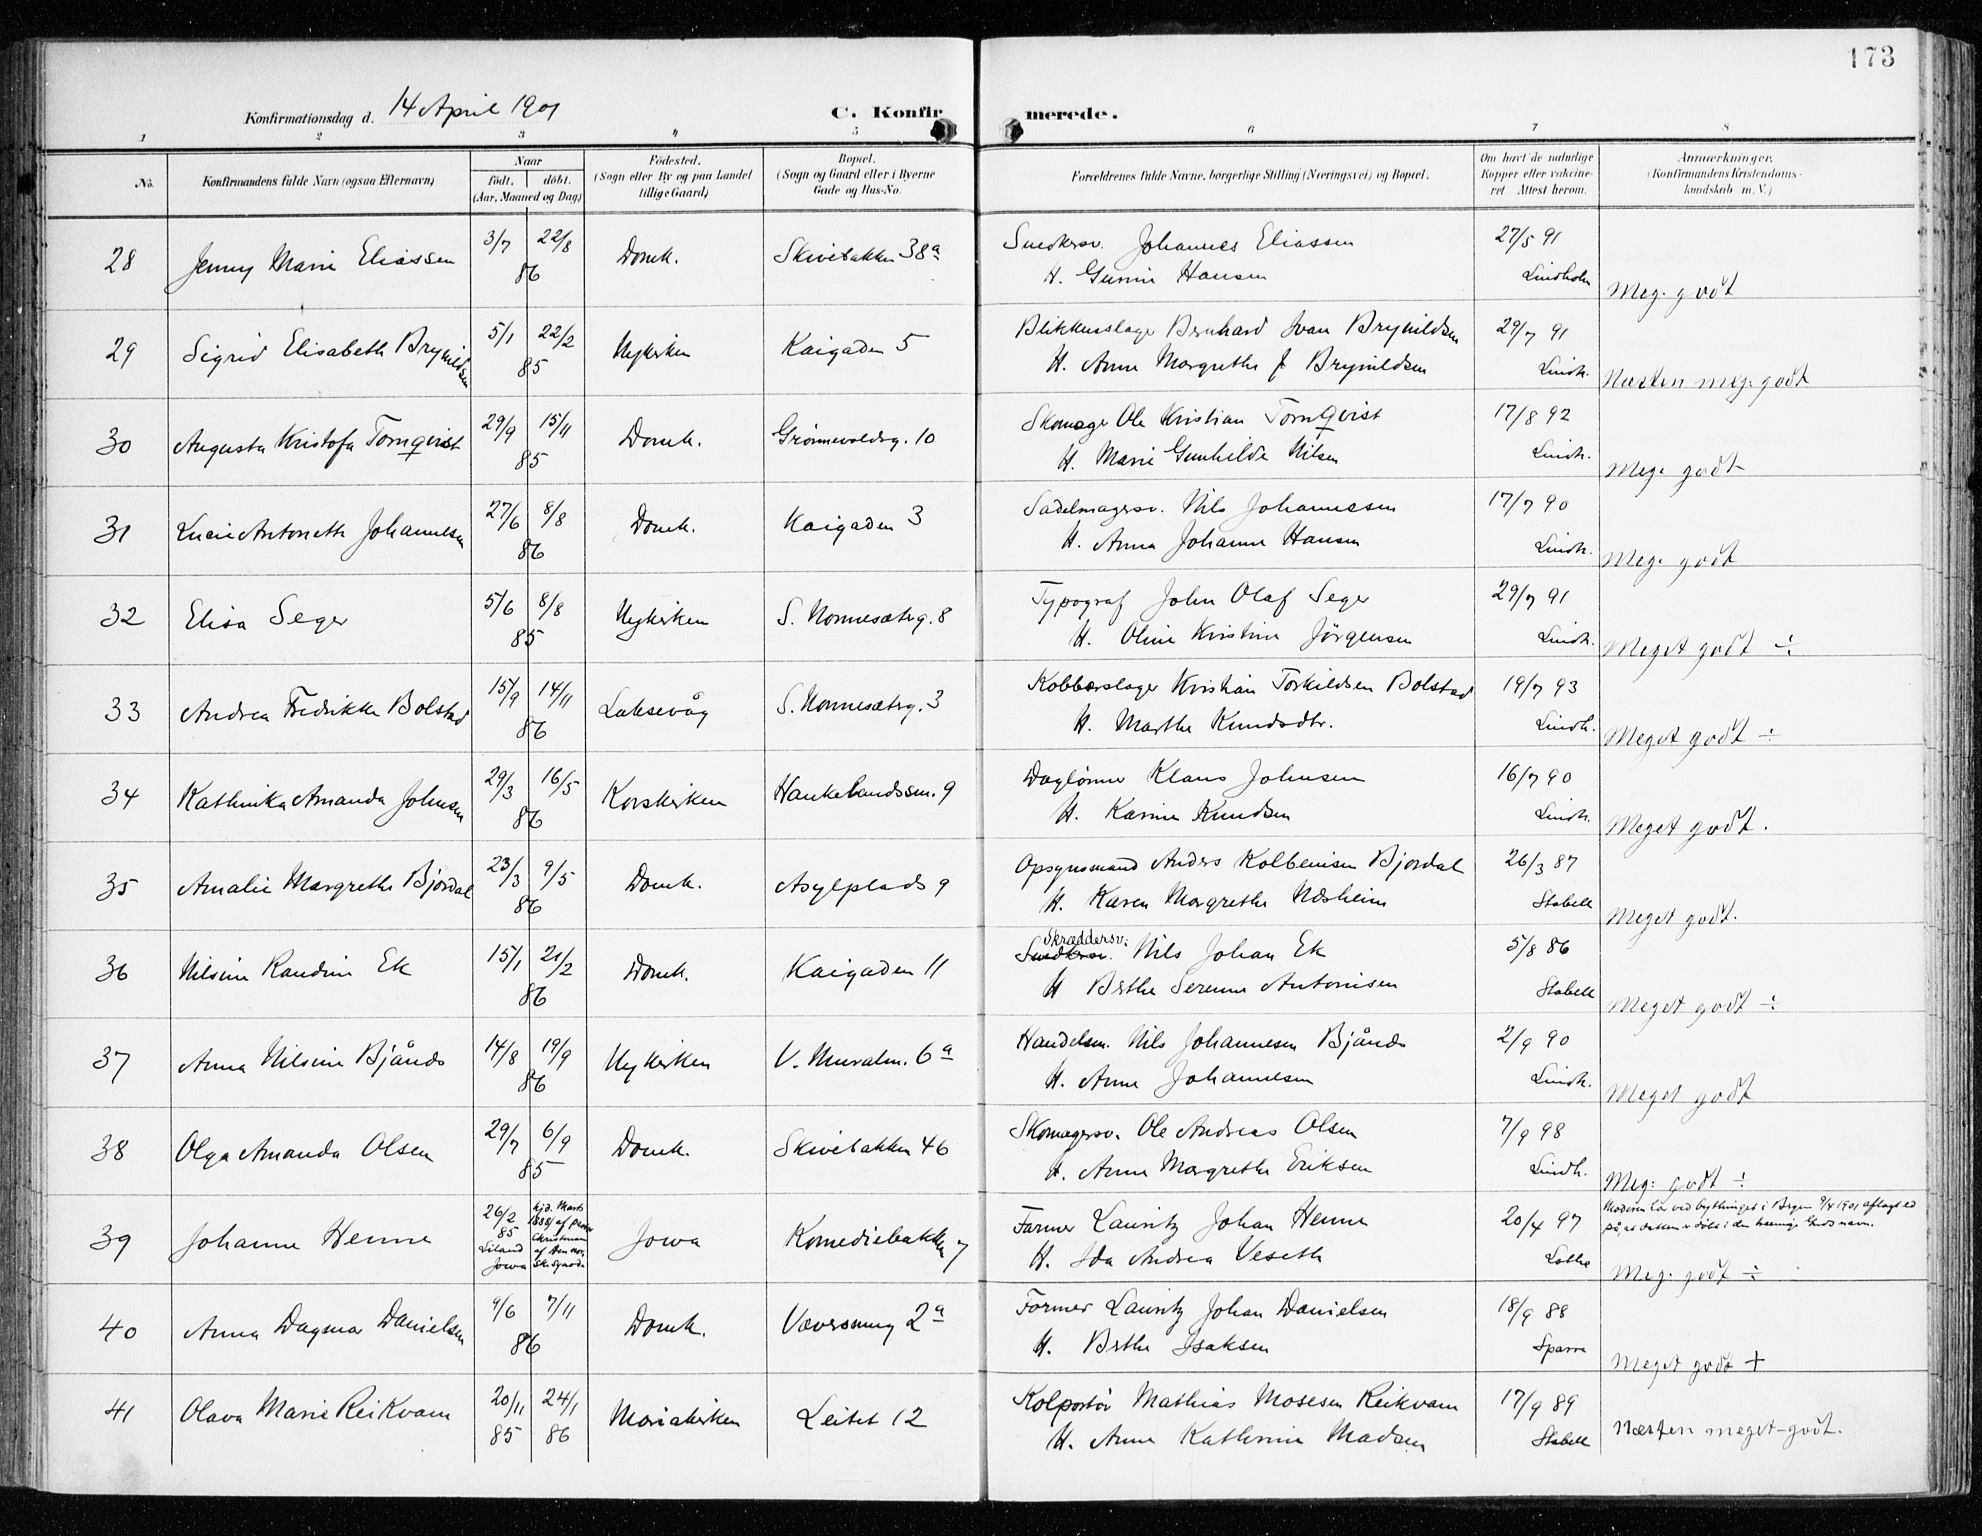 173
Konfirmationsdag d. 14 April 1901
C. Konfirmerede.
1 2 3 4 5 6 7 8
No.
Konfirmandens fulde Navn (ogsaa Efternavn)
Naar
födt. döbt.
(Aar, Maaned og Dag)
Födested.
(Sogn eller By og paa Landet
tillige Gaard)
Bopæl.
(Sogn og Gaard eller i Byerne
Gade og Hus-No.
Forældrenes fulde Navne, borgerlige Stilling (Næringsvei) og Bopæl.
Om havt de naturlige
Kopper eller vakcine-
ret. Attest herom.
Anmærkninger.
(Konfirmandens Kristendoms-
kundskab m. V.)
28 Jenny Marie Eliassen 3/7 22/8 86 Domk. Skivebakken 38a
Snedkersv. Johannes Eliassen 27/5 91
H. Gurine Hansen Lindholm Meg. godt
29 Sigrid Elisabeth Brynildsen 5/1 22/2 85 Nykirken Kaigaden 5
Blikkenslager Bernhard Ivan Brynildsen 29/7 91
H. Anne Margrethe f Brynildsen Lindh. Næsten meg. godt
30 Augusta Kristofa Tornqvist 29/9 15/11 85 Domk. Grönnevoldsg. 10
Skomager Ole Kristian Tornqvist 17/8 92
H. Marie Gunhilde Nilsen Lindh. Meg. godt
31 Lucie Antonette Johannesen 27/6 8/8 86 Domk. Kaigaden 3
Sadelmagersv. Nils Johannesen 17/7 90
H. Anna Johanne Hansen Lindh. Meg. godt
32 Elisa Seger 5/6 8/8 85 Nykirken S. Nonnesæterg. 8
Typograf John Olaf Seger 29/7 91
H. Oline Kristine Jörgensen Lindh. Meget godt ÷
33 Andrea Fredrikke Bolstad 15/9 14/11 86 Laksevåg S. Nonnesæterg. 3
Kobberslager Kristian Torkildsen Bolstad 19/7 93
H. Marthe Knudsdtr. Lindh. Meget godt ÷
34 Kathinka Amanda Johnsen 29/3 16/5 86 Korskirken Haukelandssm. 9
Daglönner Klaus Johnsen 16/7 90
H. Karine Knudsen Lindh. Meget godt.
35 Amalie Margrethe Bjordal 23/3 9/5 86 Domk. Asylplads 9
Opsynsmand Anders Kolbeinsen Bjordal 26/3 87
H. Karen Margrethe Næsheim Stabell Meget godt.
36 Nilsine Randine Ek 15/1 21/2 86 Domk. Kaigaden 11
Skræddersv.
Snedkersv. Nils Johan Ek 5/8 86
H Berthe Serenne Antonisen Stabell Meget godt ÷
37 Anna Nilsine Bjånes 14/8 19/9 86 Nykirken V. Muralm. 6a
Handelsm. Nils Johannesen Bjånes 2/9 90
H. Anne Johannesen Lindh. Meget godt
38 Olga Amanda Olsen 29/7 6/9 85 Domk. Skivebakken 46
Skomagersv. Ole Andreas Olsen 7/9 98
H. Anne Margrethe Eriksen Lindh. Meg: godt ÷
39 Johanne Henne 26/2 85 Jowa hjd. Marts 1888 af Pastor Christensen af den norske Synode Jowa Komediebakken 7
Farmer Lauritz Johan Henne 20/4 97
H. Ida Andrea Veseth Lothe
Moderen har ved bythinget i Bergen 9/4 1901 aflagt ed
på, at datteren er döbt i den treenige Guds navn.
Meg. godt ÷
40 Anna Dagmar Danielsen 9/6 7/11 86 Domk. Væversmug 2a
Former Lauritz Johan Danielsen 18/9 88
H. Berthe Isaksen Sparre Meget godt +
41 Olava Marie Reikvam 20/11 85 24/1 86 Mariakirken Leitet 12
Kolportör Mathias Mosesen Reikvam 17/9 89
H. Anne Kathrine Madsen Stabell Næsten meget-godt.